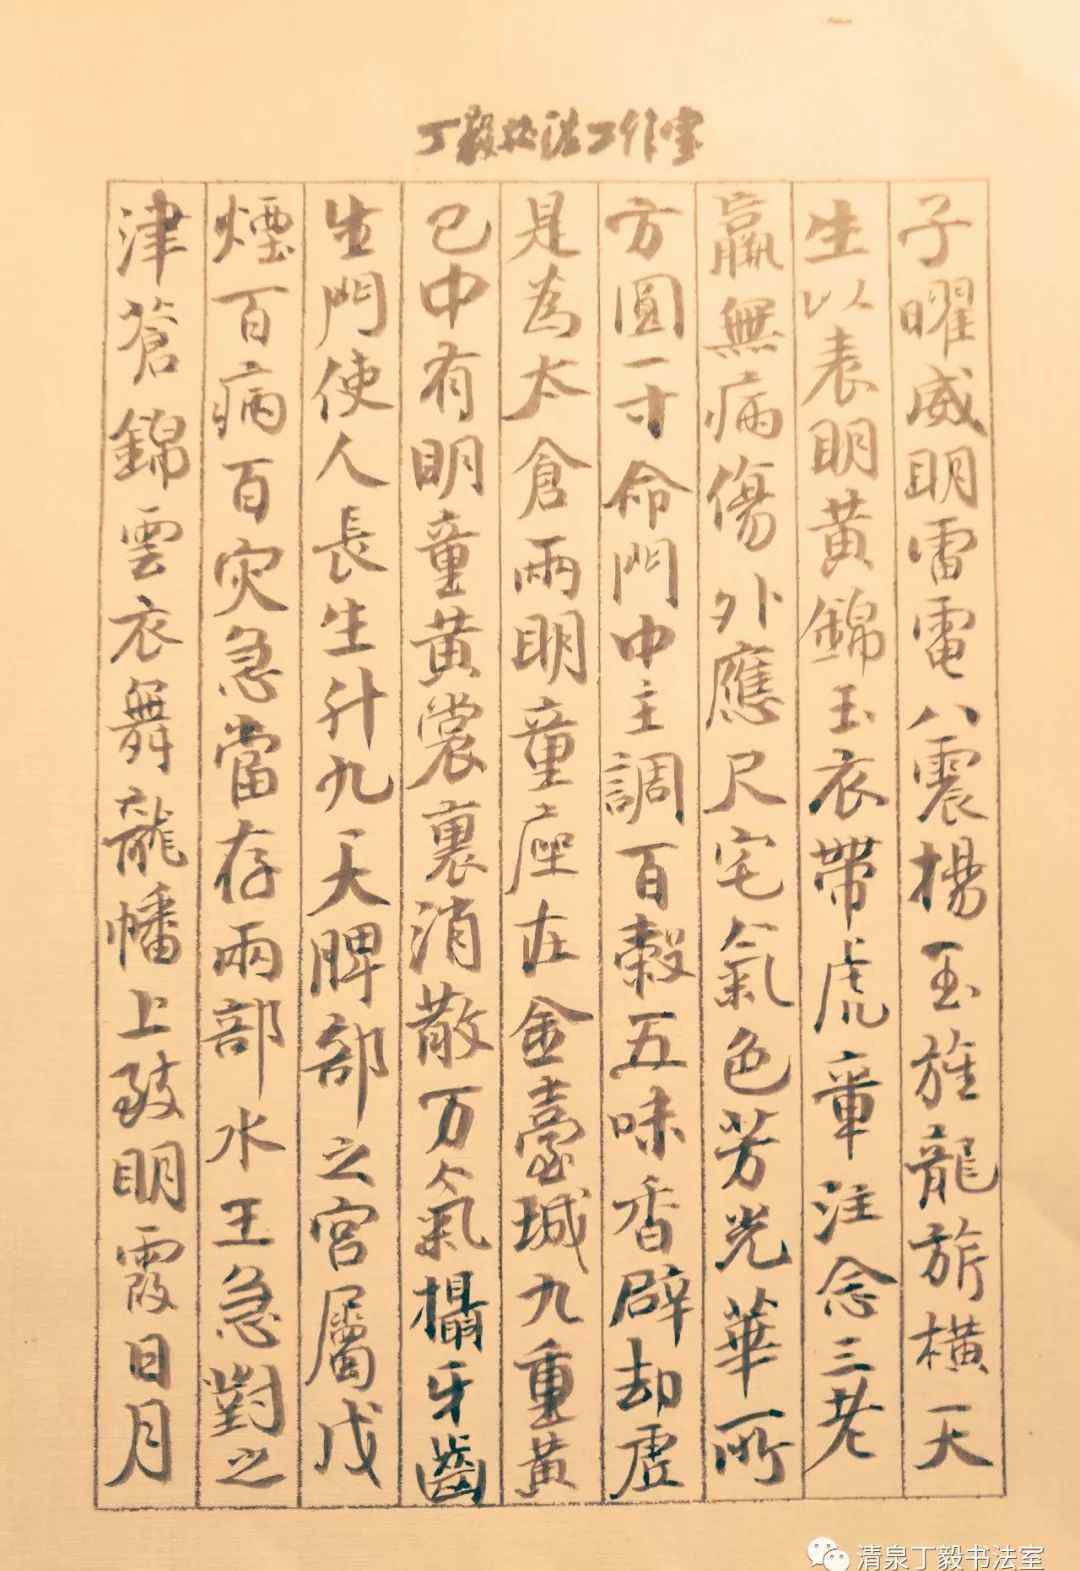 丁毅书法工作室
子曜威明雷電八震楊玉旌龍旂橫天
生以表明黃錦玉衣帶虎章注念三老
羸無病傷外應尺宅氣色芳光華所
方圓一寸命門中主調百穀五味香辟却虛
是為太倉兩明童座在金臺城九重黃
已中有明童黃裳裏消散万氣攝牙齒
生門使人長生升九天脾部之宮屬戊
煙百病百灾急當存兩部水王急對之
津蒼錦雲衣舞龍幡上致明霞日月
清泉丁毅书法室